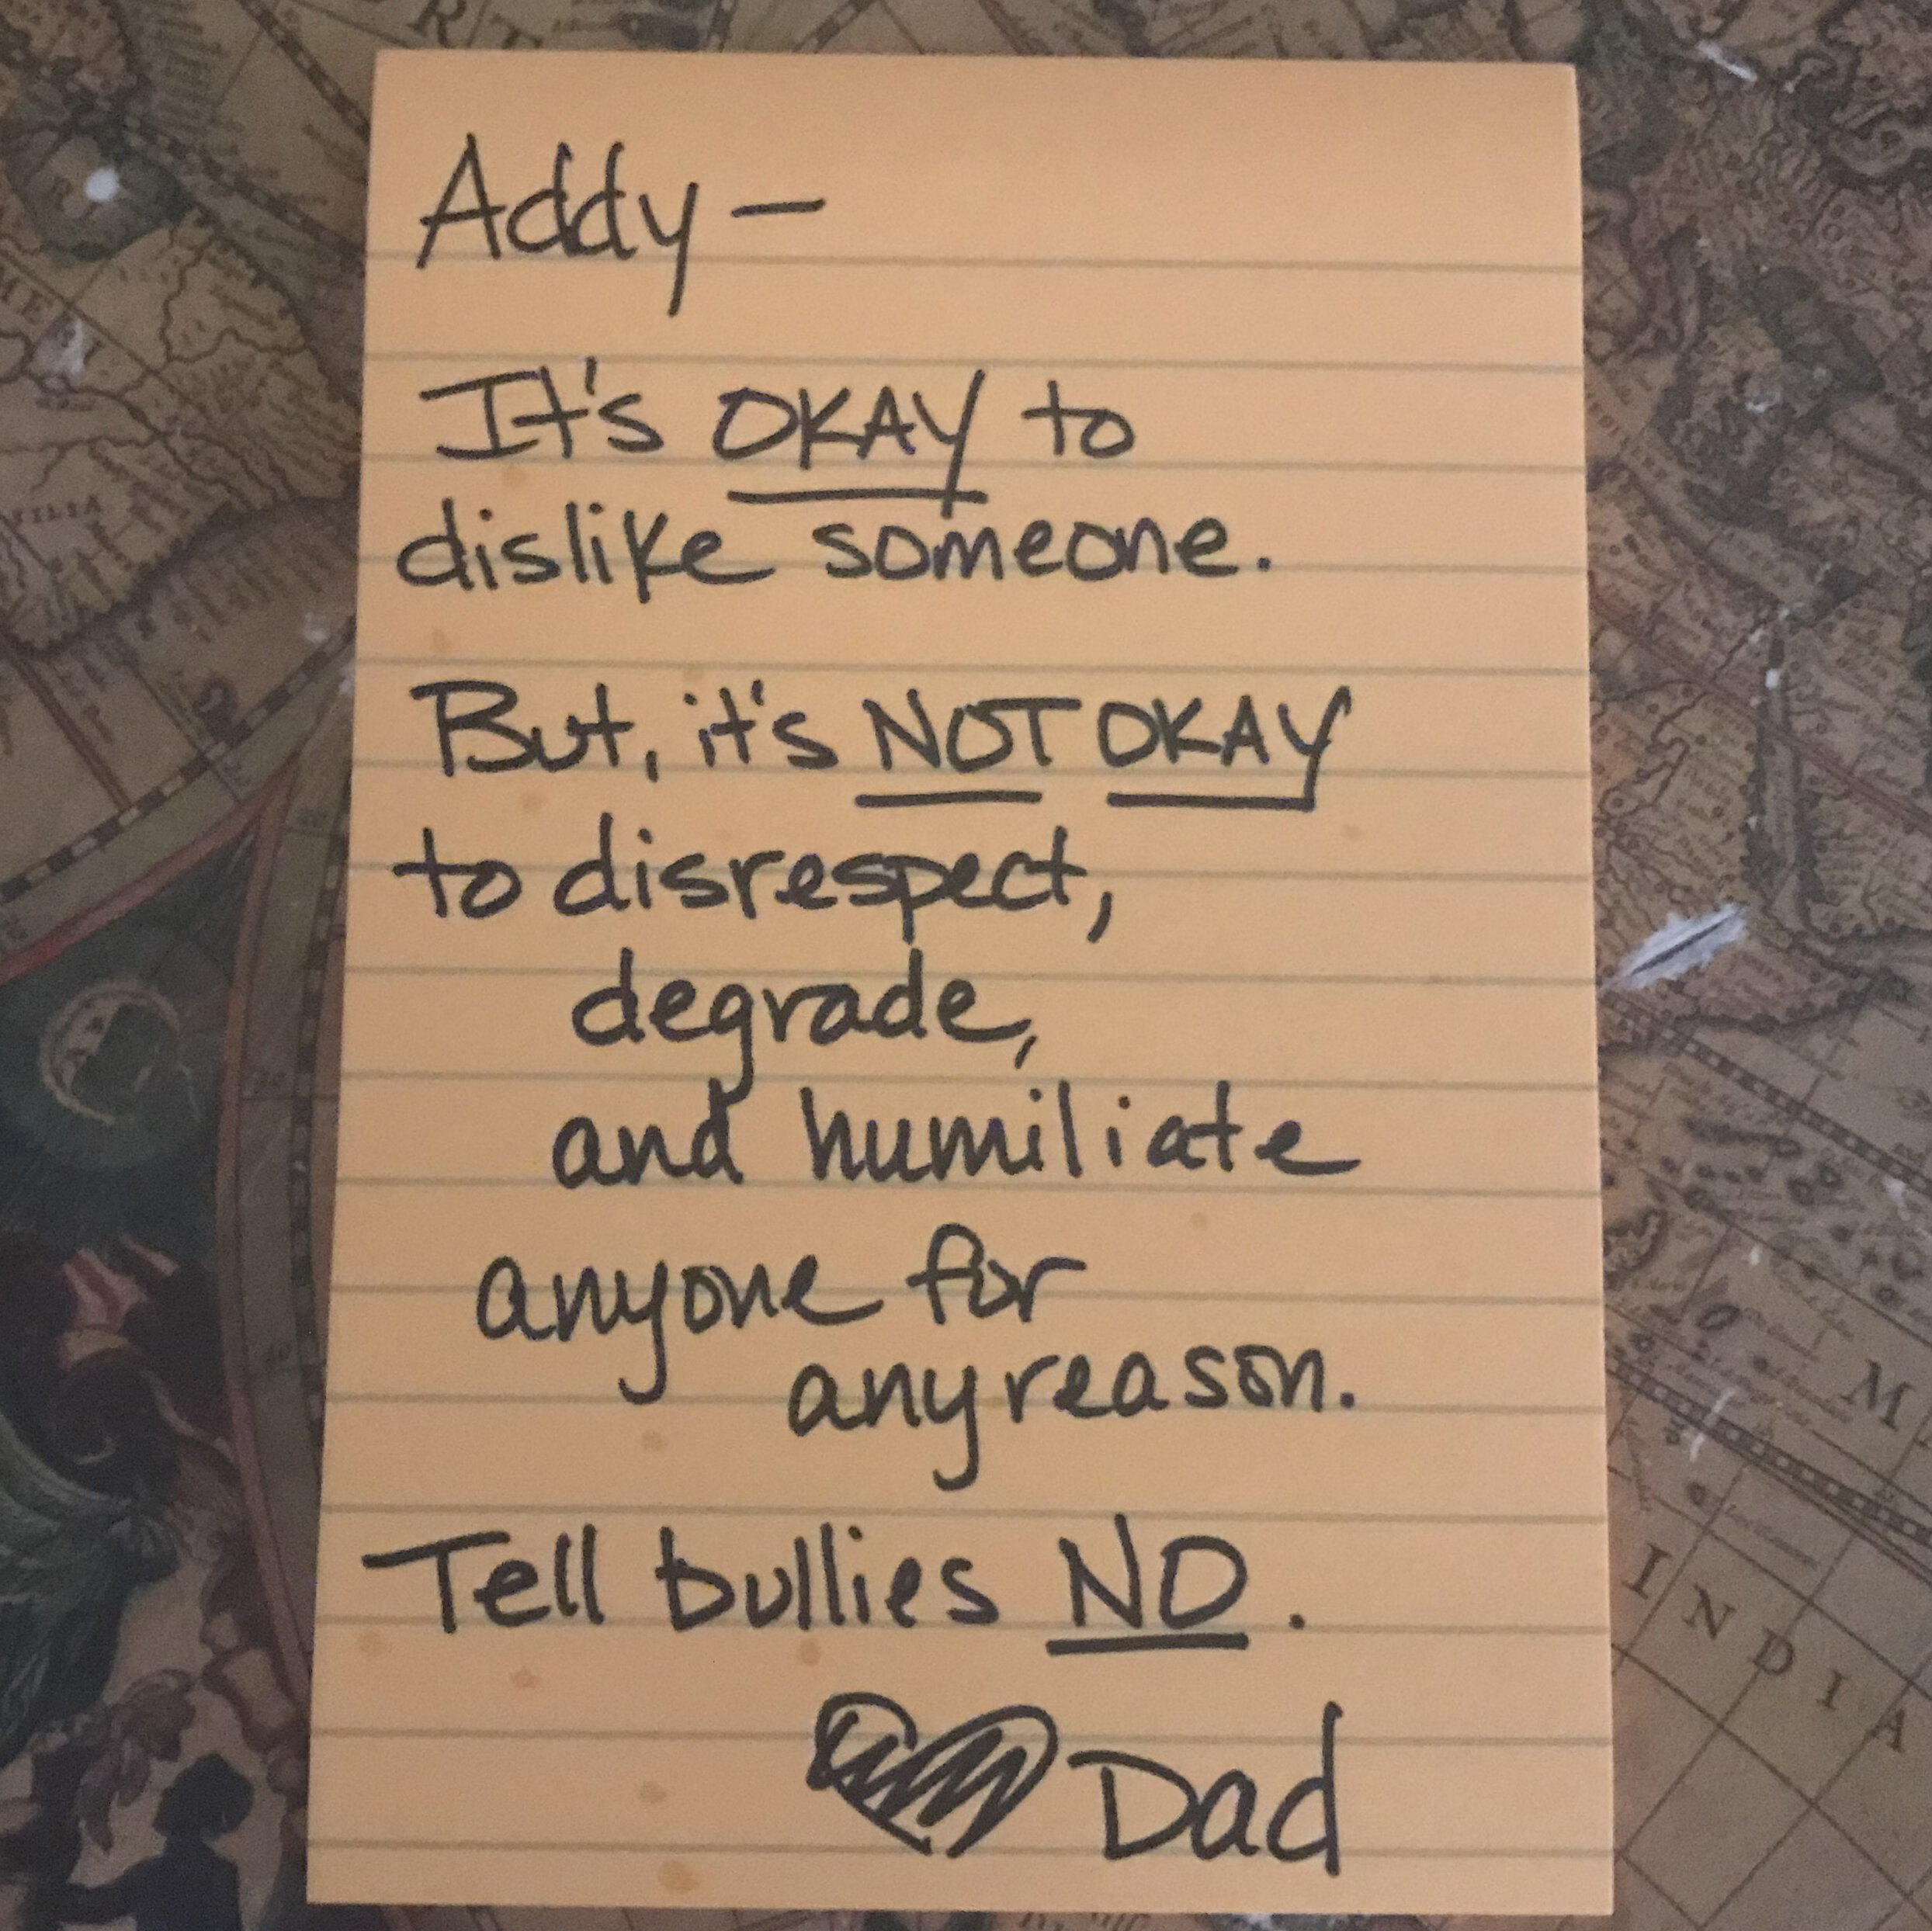 Addy –
It's OKAY to
dislike someone.
But, it's NOT OKAY
to disrespect,
degrade,
and humiliate
anyone for
any reason.
Tell bullies NO.
Dad
M
INDIA